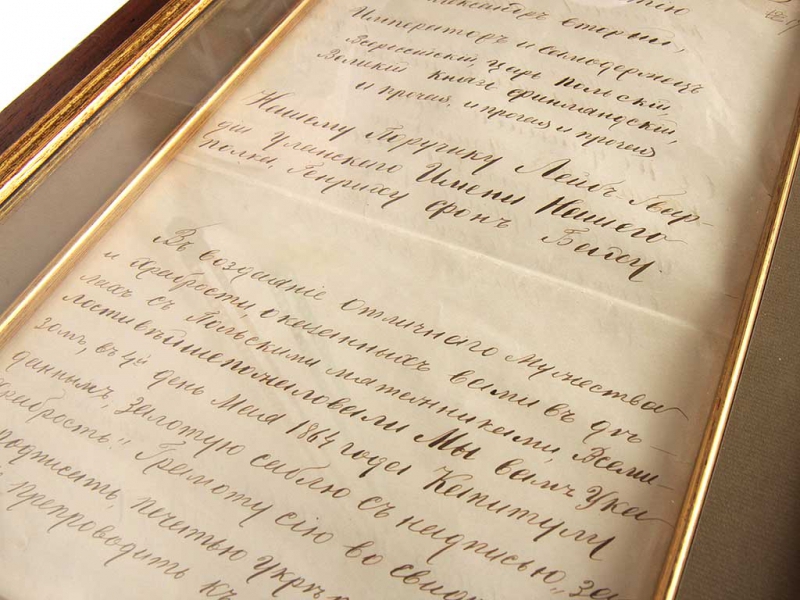 Александръ вторый,
Императоръ и самодержецъ
Всероссійскій, царь Польскій,
Великій князь финляндскій,
и прочая, и прочая и прочая
Нашему Поручику Лейбъ Гвар-
діи Уланскаго Имени Нашего
полка, Генриху фонъ Бойсу
Въ воздаяніе отличнаго мужества
и храбрости, оказанныхъ вами въ дѣ-
лахъ съ Польскими мятежниками, Всеми-
лостивѣйше пожаловали Мы вамъ Ука-
зомъ, въ 4й день Мая 1864 года Капитулу
даннымъ, золотую саблю съ надписью „за
храбрость." Грамоту сію во свидѣ
подписать, печатью укрѣп
и препроводить къ